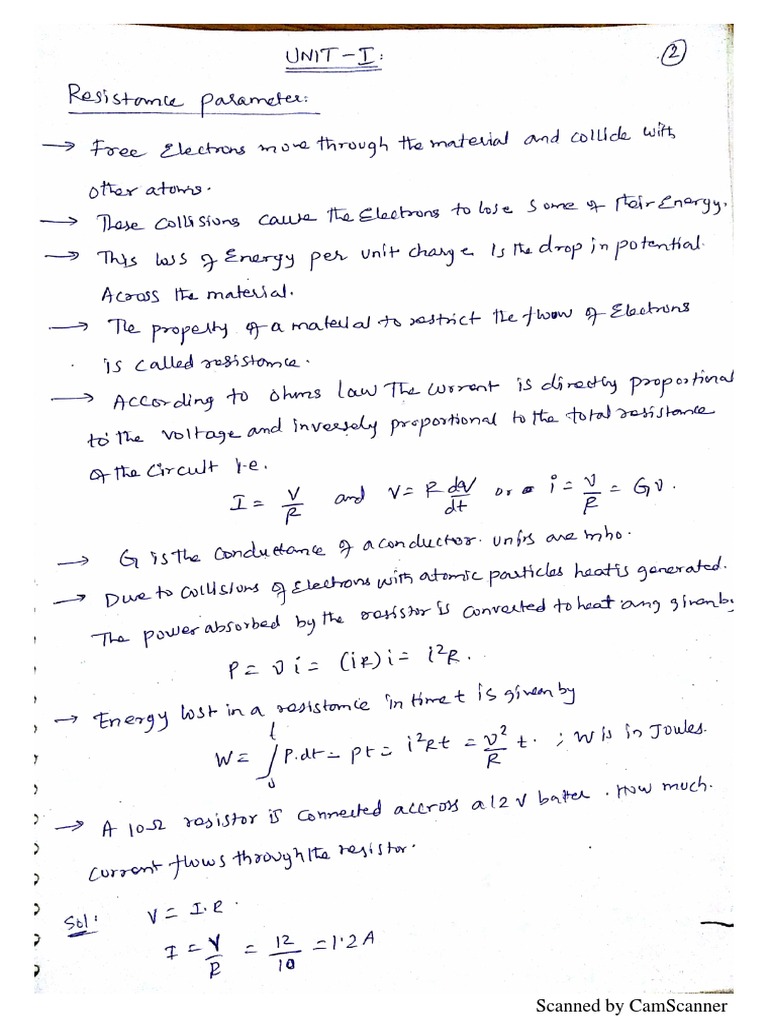 UNIT-I:
2
Resistance parameter:
→ Free Electrons move through the material and collide with
other atoms.
→ These collisions cause the Electrons to lose some of their Energy.
→ This loss of Energy per unit charge is the drop in potential
Across the material.
→ The property of a material to restrict the flow of Electrons
is called resistance.
→ According to ohms law The current is directly proportional
to the voltage and inversely proportional to the total resistance
of the circuit i.e.
I = V/R and V = R dq/dt or i = v/R = Gv.
→ G is the conductance of a conductor. units are mho.
→ Due to collisions of Electrons with atomic particles heat is generated.
The power absorbed by the resistor is converted to heat ang given by
P = vi = (iR)i = i²R.
→ Energy lost in a resistance in time t is given by
W = ∫₀ᵗ P.dt = pt = i²Rt = v²/R t. ; W is in Joules.
→ A 10Ω resistor is connected accross a 12 v batter. How much.
current flows through the resistor.
Sol: V = I.R.
I = V/R = 12/10 = 1.2A
Scanned by CamScanner